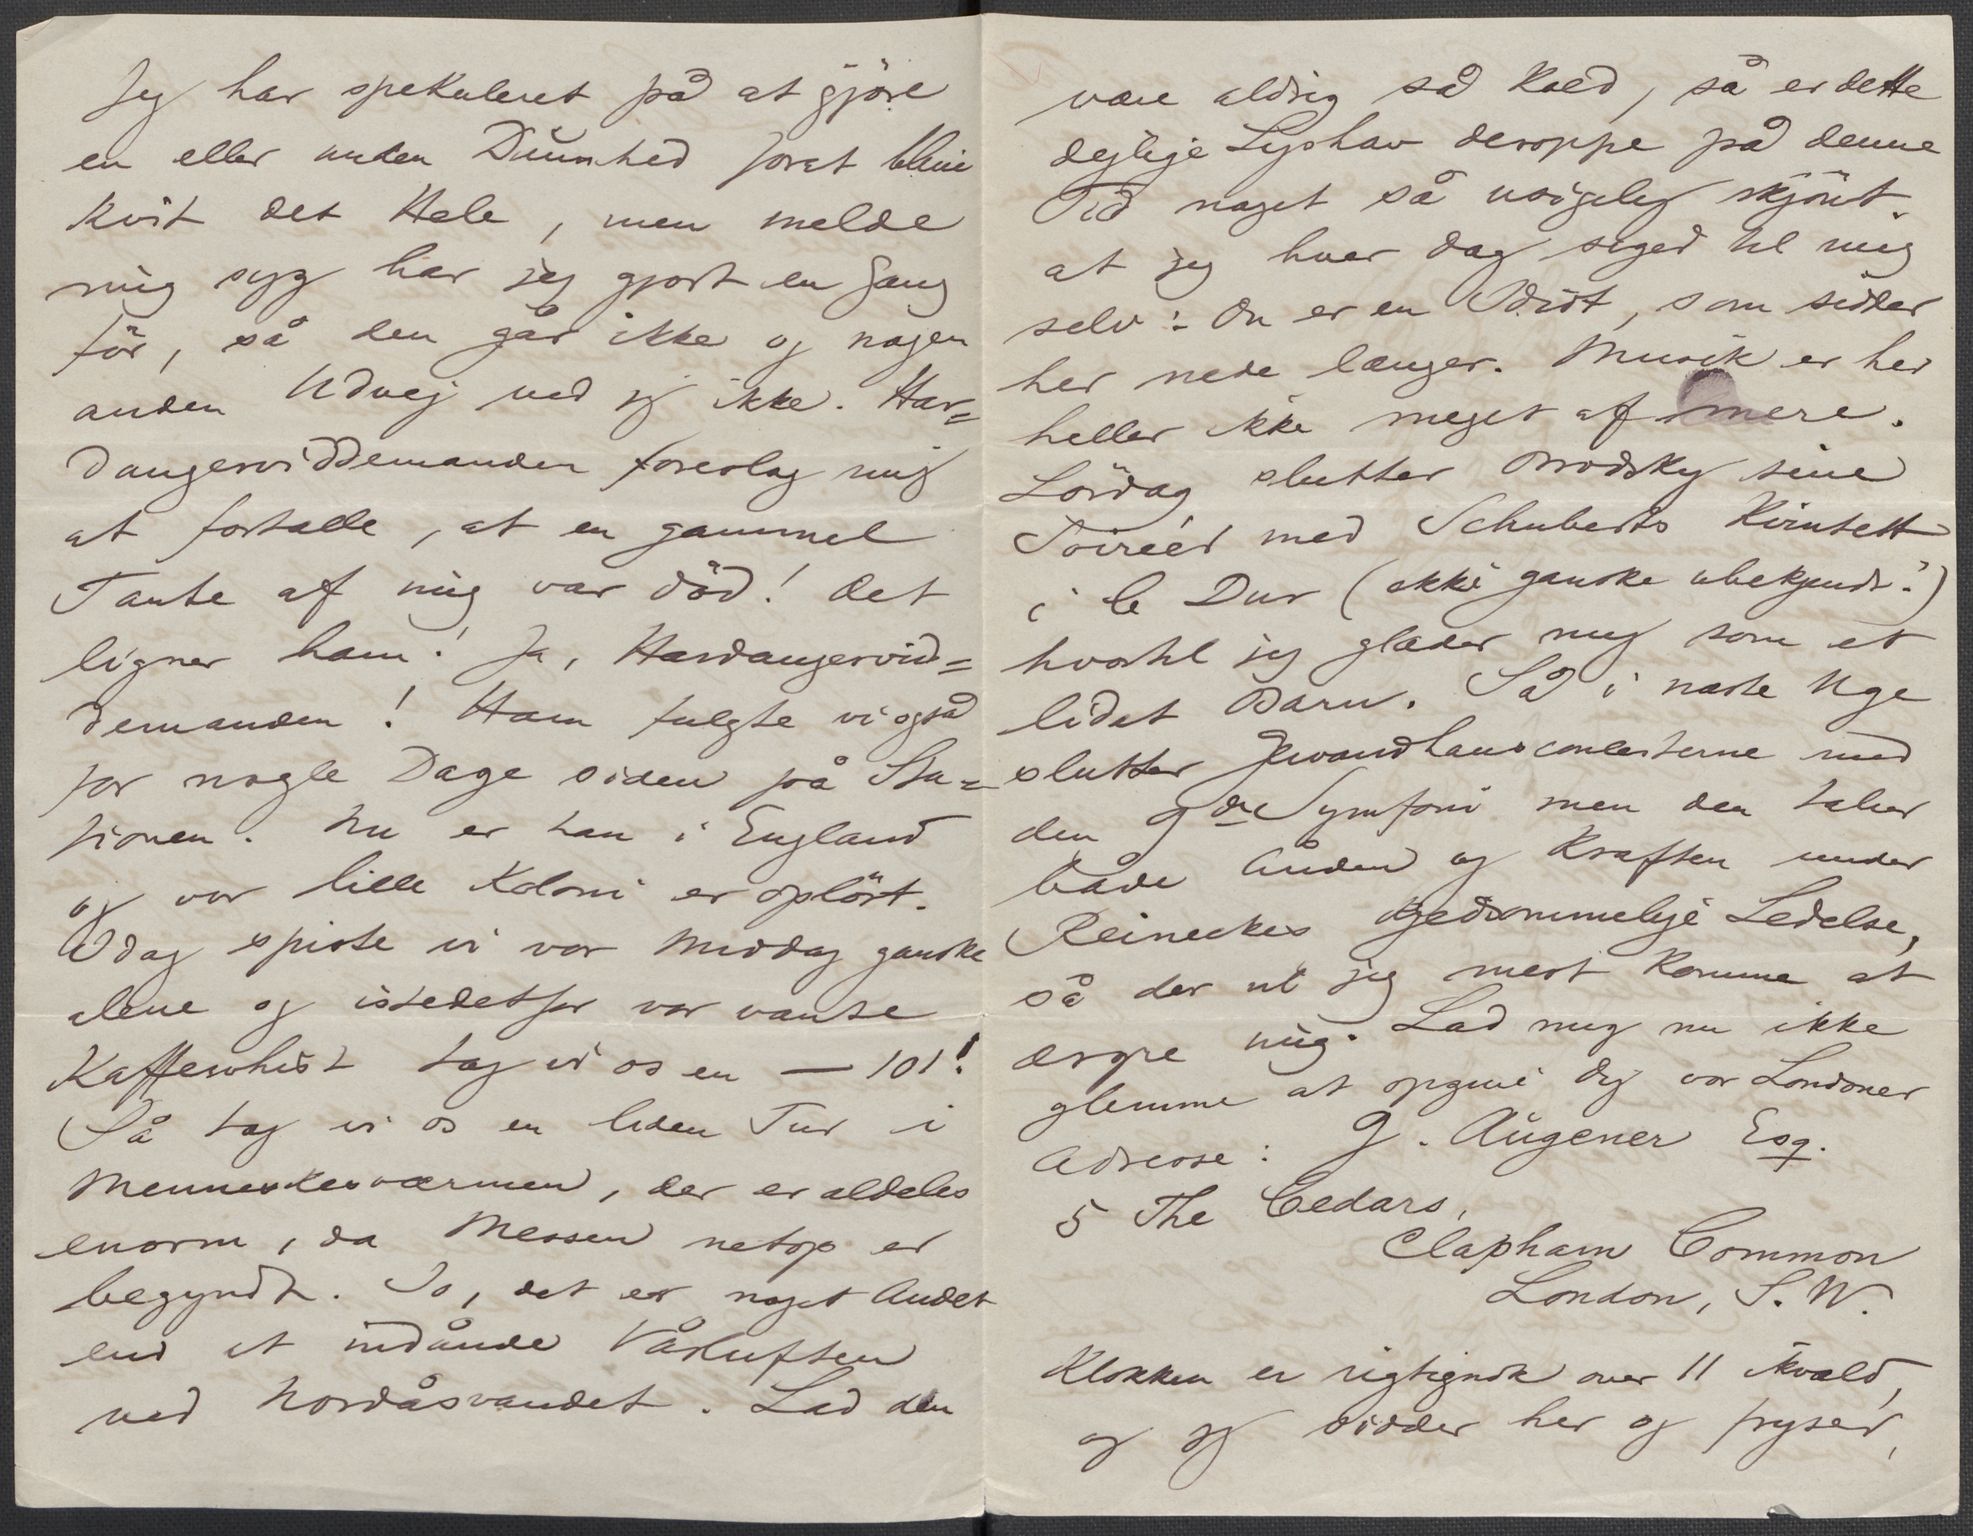 Jeg har spekuleret på at gjöre
en eller anden Dumhed forat blive
kvit det Hele, men melde
mig syg har jeg gjort en Gang
för, så den går ikke og nogen
anden Udvej ved jeg ikke. Har=
dangerviddemanden foreslog mig
at fortælle, at en gammel
Tante af mig var död! Det
ligner ham! Ja, Hardangervid=
demanden! Ham fulgte vi også
for nogle Dage siden på Sta=
tionen. Nu er han i England
og vor lille Koloni er oplöst.
Idag spiste vi vor Middag ganske
alene og istedetfor vor vante
Kaffewhist tog vi os en — 101!
Så tog vi os en liden Tur i
Menneskesværmen, der er aldeles
enorm, da Messen netop er
begyndt. Jo, det er noget Andet
end at indånde Vårluften
ved Nordåsvandet. Lad den
være aldrig så kold, så er dette
dejlige Lyshav deroppe på denne
Tid noget så usigelig skjönt,
at jeg hver Dag siger til mig
selv: Du er en Idiot, som sidder
her nede længer. Musik er her
heller ikke meget af mere.
Lördag slutter Brodsky sine
Soiréer med Schuberts Kvintett
i C Dur (ikke ganske ubekjendt!)
hvortil jeg glæder mig som et
lidet Barn. Så i næste Uge
slutter Gewandhausconcerterne med
den 9de Symfoni men den taber
både Ånden og Kraften under
Reineckes kjedsommelige Ledelse,
så der vil jeg mest komme at
ærgre mig. Lad mig nu ikke
glemme at opgive Dig vor Londoner
Adresse: G. Augener Esq.
5 The Cedars,
Clapham Common
London, S. W.
Klokken er rigtignok over 11 ikvæld,
og jeg sidder her og fryser,